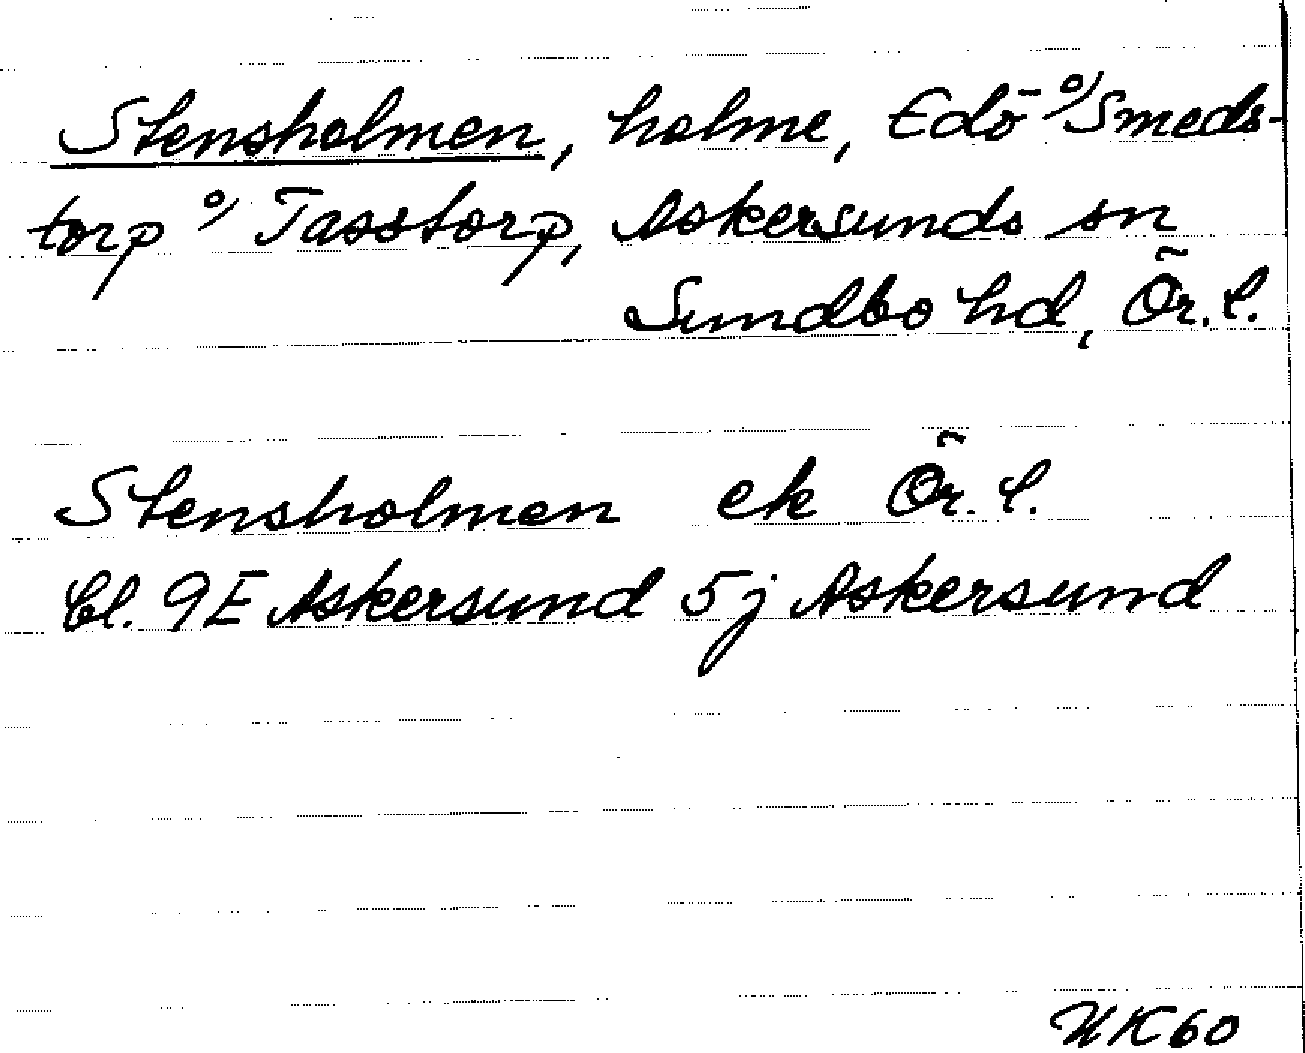 Stensholmen, holme, Edö o/ Smeds-
torp o/ Tasstorp, Askersunds sn
Sundbo hd, Ör. l.
Stensholmen ek Ör. l.
Bl. 9E Askersund 5j Askersund
NK60